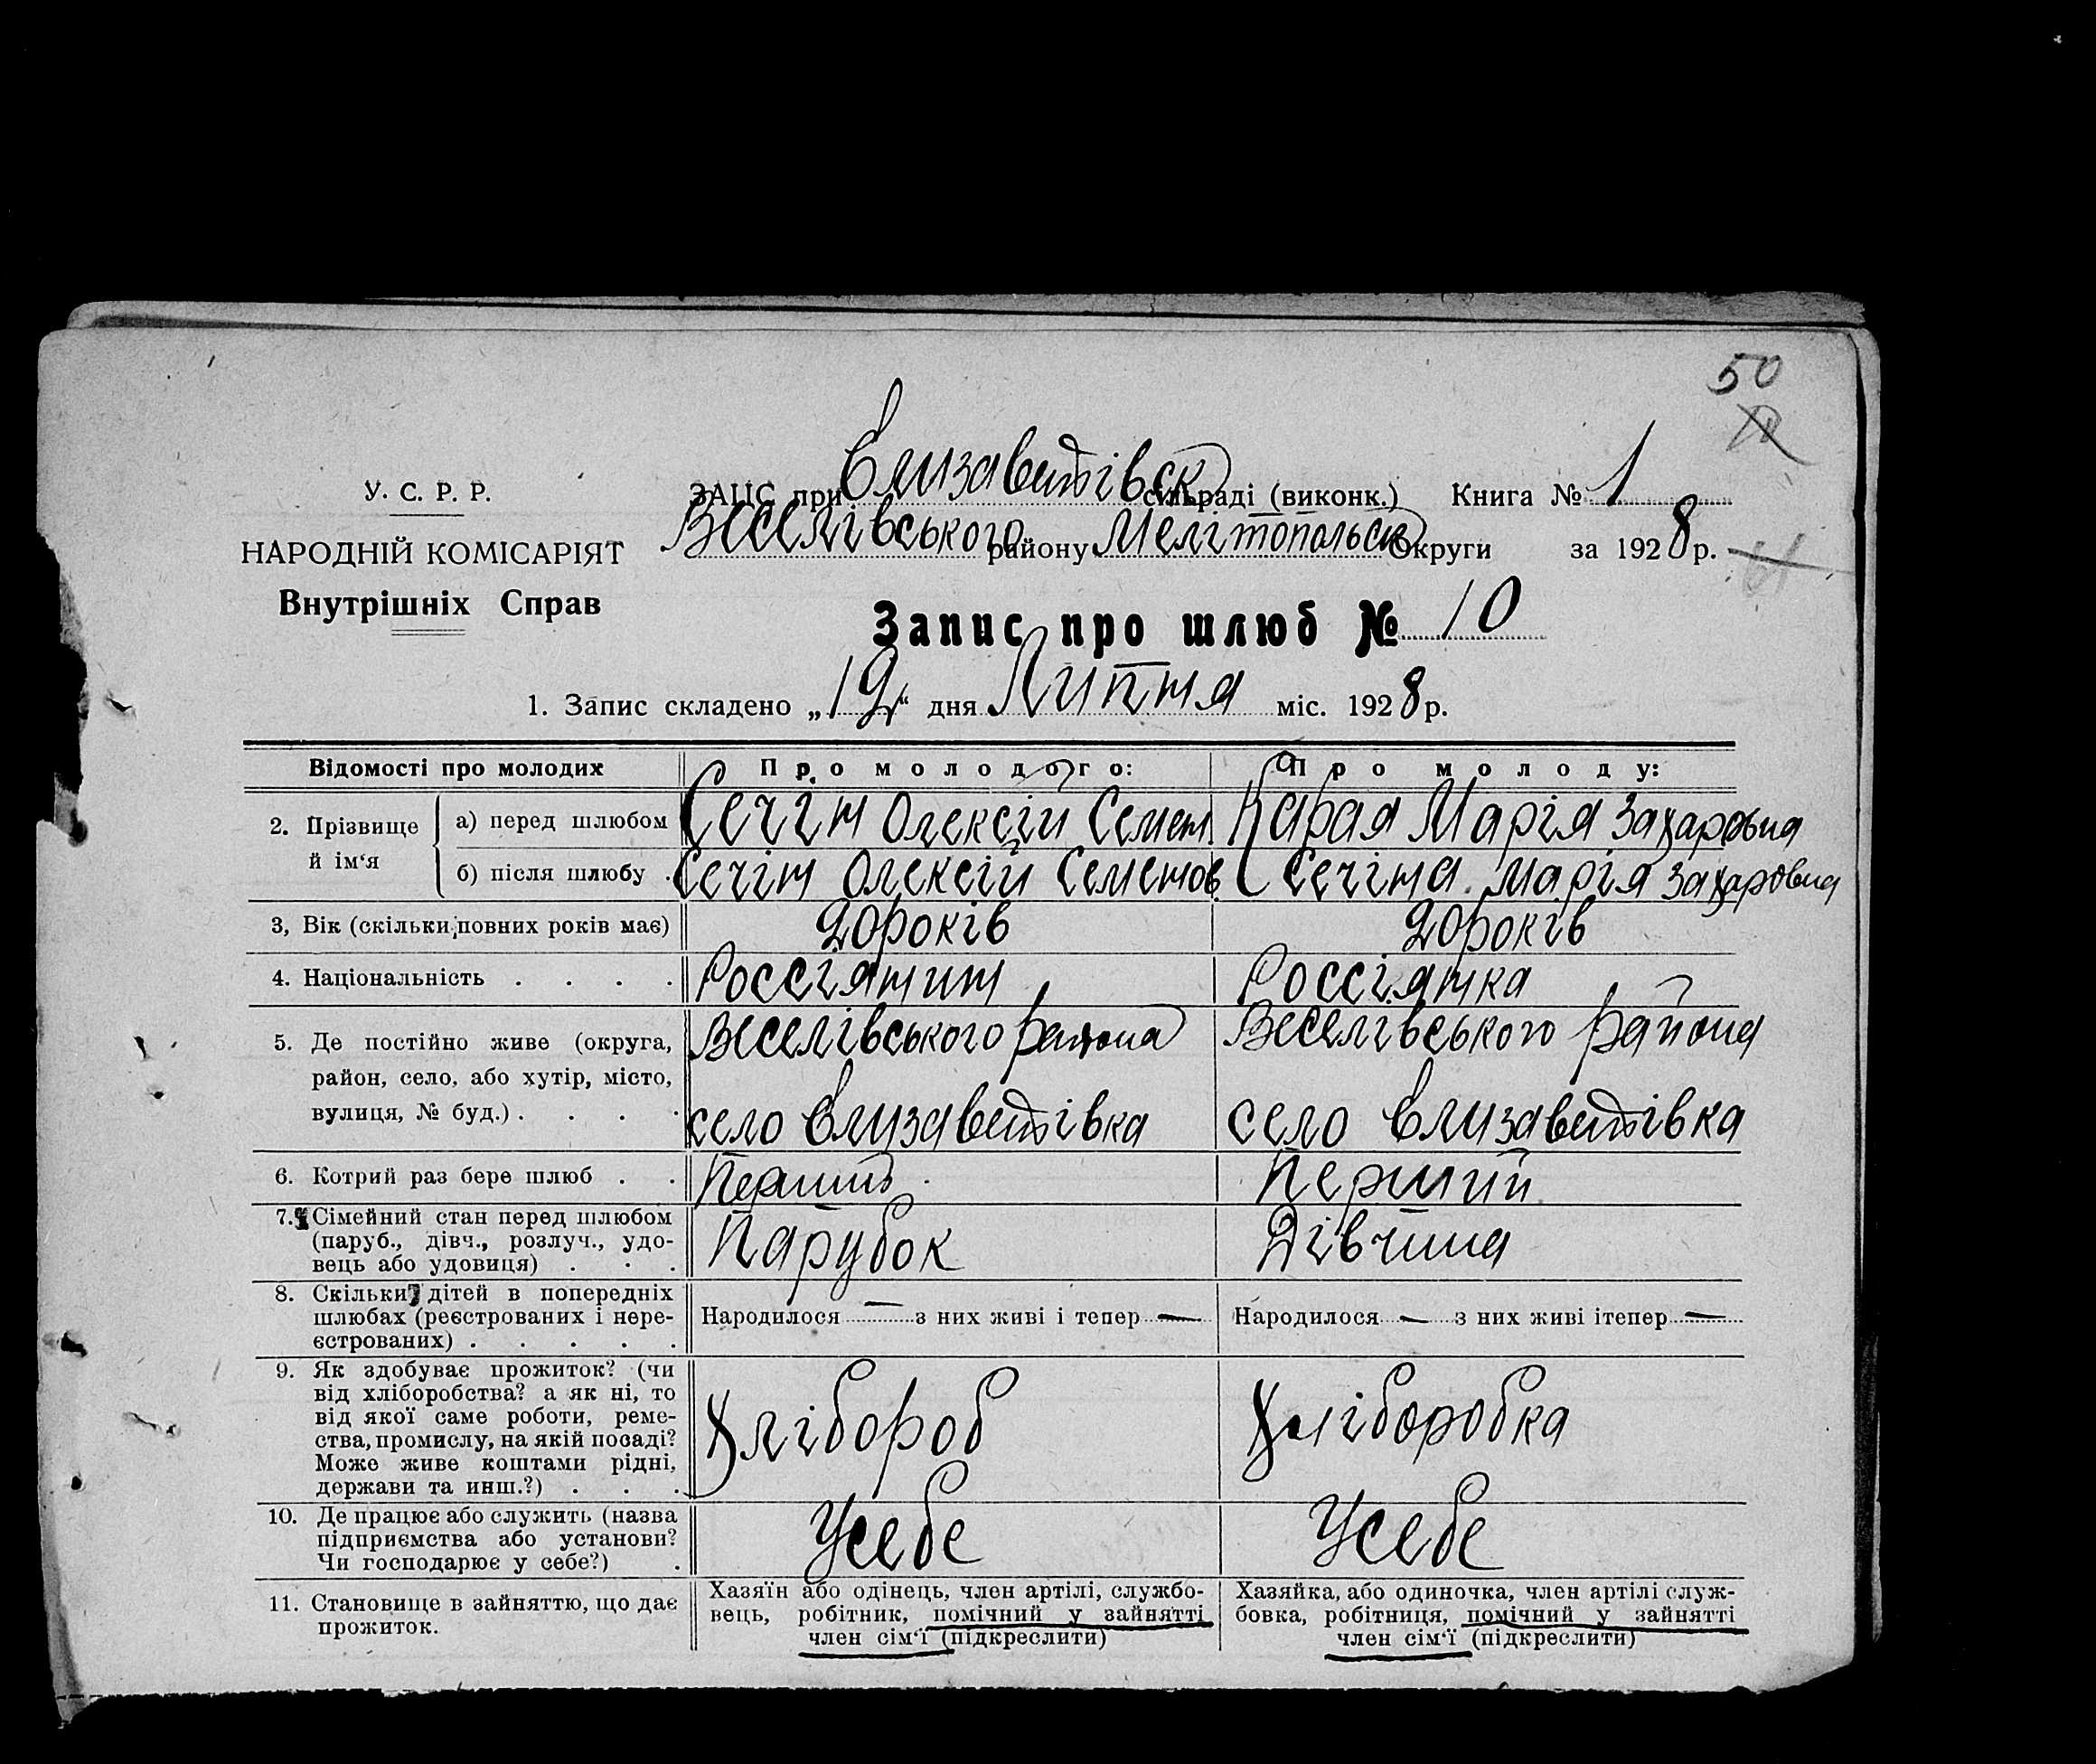 50
У. С. Р. Р.
НАРОДНІЙ КОМІСАРІЯТ
Внутрішніх Справ
ЗАЦС при Єлизаветівськ сільраді (виконк.) Книга № 1
Веселівського району Мелітопольськ Округи за 1928 р.
Запис про шлюб № 10
1. Запис складено „12“ дня Липня міс. 1928 р.
Відомості про молодих Про молодого: Про молоду:
2. Прізвище й ім‘я а) перед шлюбом Сечін Олексій Семен. Карая Марія Захаровна
б) після шлюбу . Сечін Олексій Семенов. Сечіна Марія Захаровна
3, Вік (скільки повних років має) 20 років 20 років
4. Національність . . . . Россіянин Россіянка
5. Де постійно живе (округа, Веселівського района Веселівського района
район, село, або хутір, місто,
вулиця, № буд.) . . . . село Єлизаветівка село Єлизаветівка
6. Котрий раз бере шлюб . . Перший Перший
7. Сімейний стан перед шлюбом Парубок Дівчина
(паруб., дівч., розлуч., удо-
вець або удовиця) . . .
8. Скільки дітей в попередніх
шлюбах (реєстрованих і нере- Народилося — з них живі і тепер — Народилося — з них живі ітепер —
єстрованих) . . . . .
9. Як здобуває прожиток? (чи
від хліборобства? а як ні, то
від якої саме роботи, реме- Хлібороб Хліборобка
ства, промислу, на якій посаді?
Може живе коштами рідні,
держави та инш.?) . . .
10. Де працює або служить (назва
підприємства або установи? Усебе Усебе
Чи господарює у себе?) .
11. Становище в зайняттю, що дає
прожиток.
Хазяїн або одінець, член артілі, службо-
вець, робітник, помічний у зайнятті
член сім‘ї (підкреслити)
Хазяйка, або одиночка, член артілі служ-
бовка, робітниця, помічний у зайнятті
член сім‘ї (підкреслити)